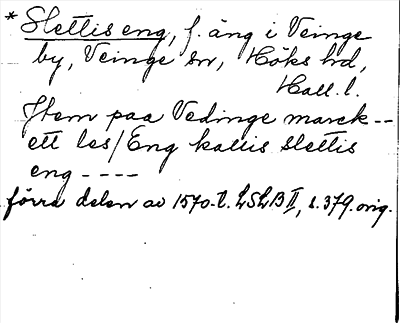 * Slettis eng, f. äng i Veinge
by, Veinge sn, Höks hd,
Hall. l.
Item paa Vedinge marck --
ett les/Eng kallis slettis
eng ----
förra delen av 1570-t. LSLB II, s. 379. orig.